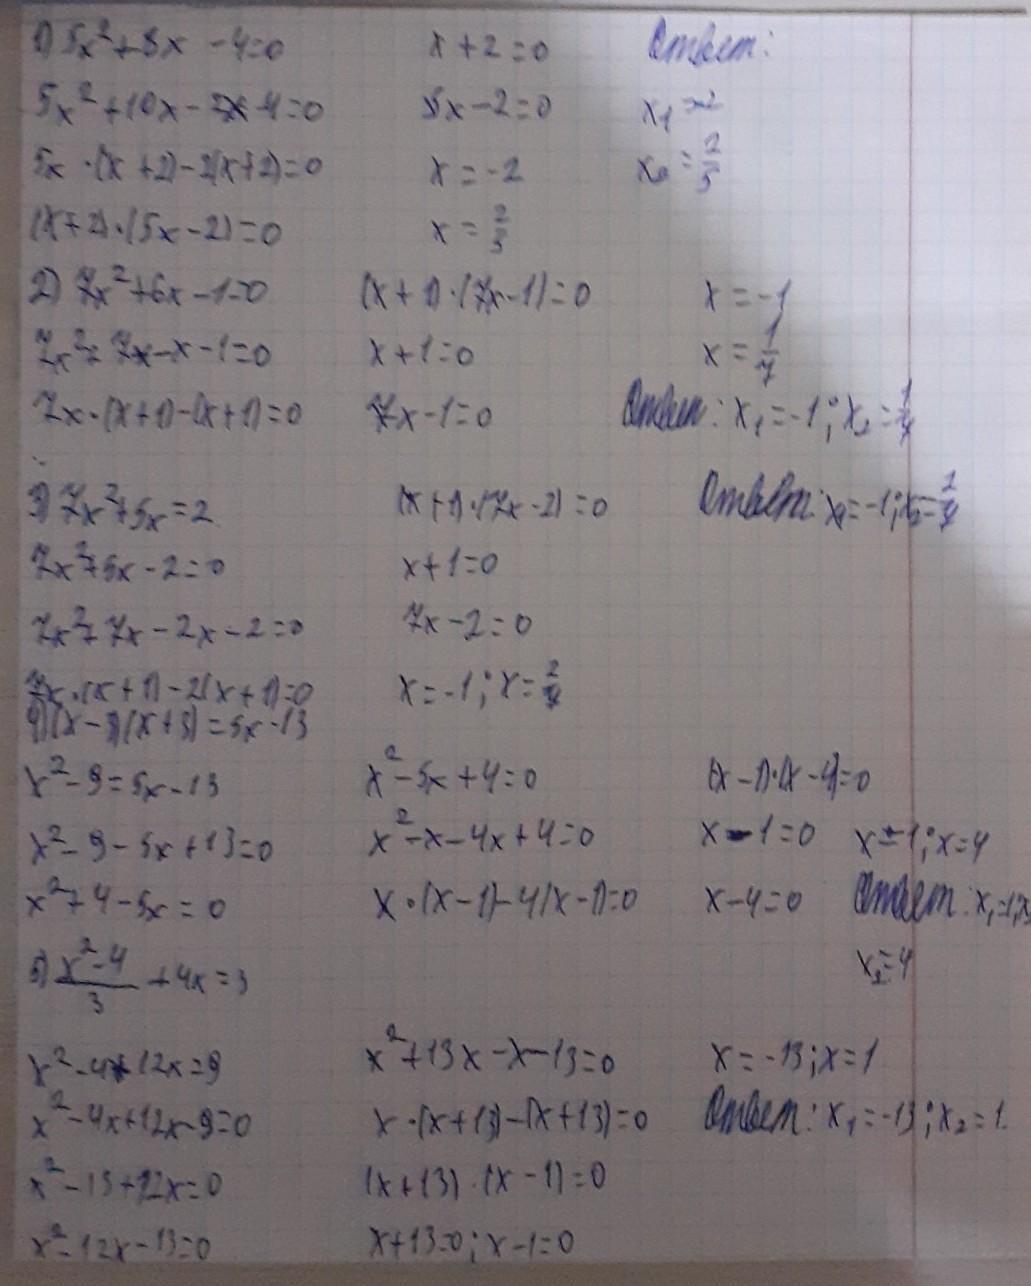 1) 5x²+8x -4=0
5x²+10x-2x-4=0
5x·(x+2)-2(x+2)=0
(x+2)·(5x-2)=0
x+2=0
5x-2=0
x=-2
x=2/5
Ответ:
x₁=-2
x₂=2/5
2) 7x²+6x-1=0
7x²+7x-x-1=0
7x·(x+1)-(x+1)=0
(x+1)·(7x-1)=0
x+1=0
7x-1=0
x=-1
x=1/7
Ответ: x₁=-1; x₂=1/7
3) 7x²+5x=2
7x²+5x-2=0
7x²+7x-2x-2=0
7x·(x+1)-2(x+1)=0
(x+1)·(7x-2)=0
x+1=0
7x-2=0
x=-1; x=2/7
Ответ: x₁=-1; x₂=2/7
4) (x-3)(x+3)=5x-13
x²-9=5x-13
x²-9-5x+13=0
x²+4-5x=0
x²-5x+4=0
x²-x-4x+4=0
x·(x-1)-4(x-1)=0
(x-1)·(x-4)=0
x-1=0
x-4=0
x=1; x=4
Ответ: x₁=1;
x₂=4
5) x²-4/3 +4x=3
x²-4+12x=9
x²-4x+12x-9=0
x²-13+12x=0
x²-12x-13=0
x²+13x-x-13=0
x·(x+13)-(x+13)=0
(x+13)·(x-1)=0
x+13=0; x-1=0
x=-13; x=1
Ответ: x₁=-13; x₂=1.